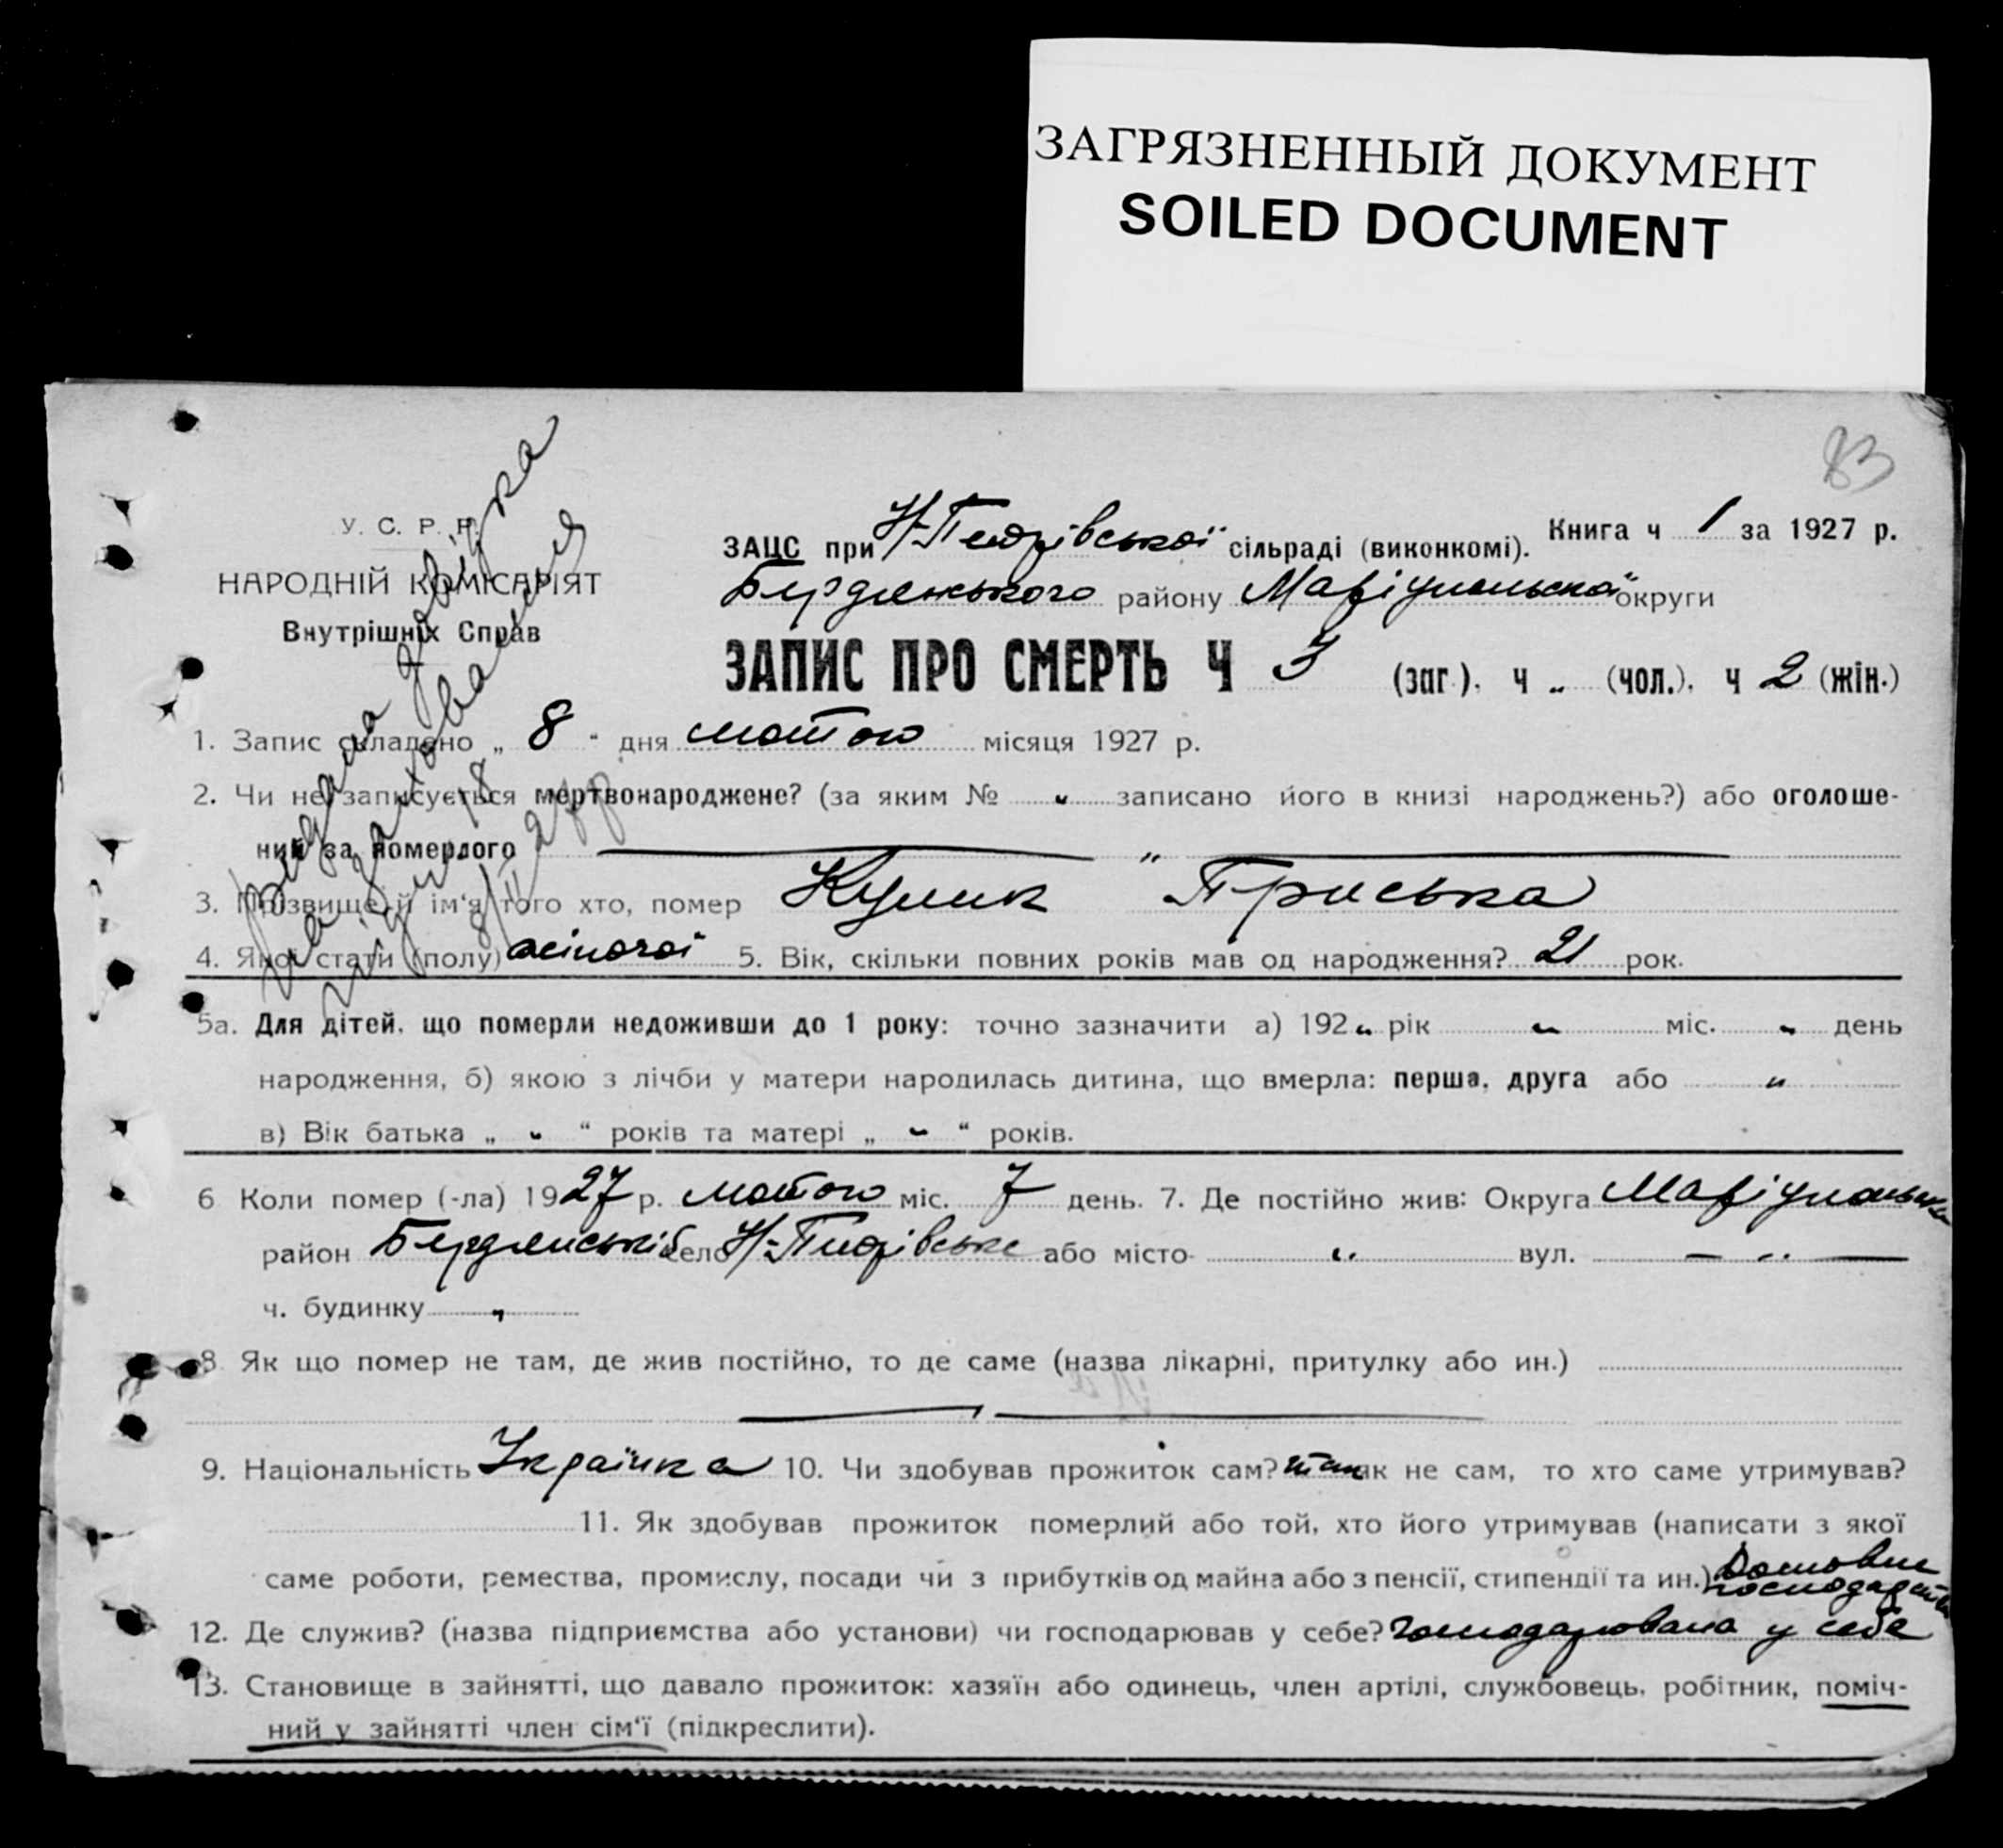 ЗАГРЯЗНЕННЫЙ ДОКУМЕНТ
SOILED DOCUMENT
83
У. С. Р. Р.
НАРОДНІЙ КОМІСАРІЯТ
Внутрішніх Справ
Видана довідка
на заховання
8/II 27 р.
ЗАЦС при Н-Петрівської сільраді (виконкомі). Книга ч 1 за 1927 р.
Бердянського району Маріупольської округи
ЗАПИС ПРО СМЕРТЬ Ч 3 (заг.). ч „ (чол.). ч 2 (жін.)
1. Запис складено „ 8 “ дня лютого місяця 1927 р.
2. Чи не записується мертвонароджене? (за яким № „ записано його в книзі народжень?) або оголоше-
ний за померлого „
3. Прізвище й ім'я того хто, помер Кулик Приська
4. Якої стати (полу) жіночої 5. Вік, скільки повних років мав од народження? 21 рок.
5а. Для дітей, що померли недоживши до 1 року: точно зазначити а) 192 „ рік „ міс. „ день
народження, б) якою з лічби у матери народилась дитина, що вмерла: перша, друга або „
в) Вік батька „ „ “ років та матері „ „ “ років.
6 Коли помер (-ла) 1927 р. лютого міс. 7 день. 7. Де постійно жив: Округа Маріупольська
район Бердянський село Н-Петрівське або місто „ вул. — „ —
ч. будинку „
8 Як що помер не там, де жив постійно, то де саме (назва лікарні, притулку або ин.)
9. Національність Українка 10. Чи здобував прожиток сам? так як не сам, то хто саме утримував?
11. Як здобував прожиток померлий або той, хто його утримував (написати з якої
саме роботи, ремества, промислу, посади чи з прибутків од майна або з пенсії, стипендії та ин.) господарство
12. Де служив? (назва підприємства або установи) чи господарював у себе? господарювала у себе
13. Становище в зайнятті, що давало прожиток: хазяїн або одинець, член артілі, службовець, робітник, поміч-
ний у зайнятті член сім'ї (підкреслити).